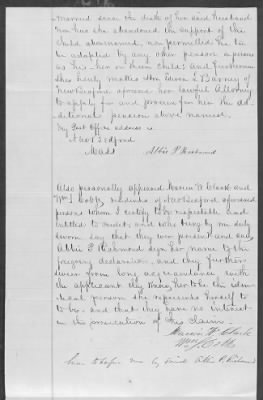 married since the death of her said husband
nor has she abandoned the support of this
child abovenamed, nor permitted him to
be adopted by any other person or persons
as his or her or them child; and furthermore
She hereby makes Hon Edwin L Barney of
New Bedford aforesaid her lawful Attorney
to apply for and procure for her the ad-
ditional pension above named.
My Post Office address is
New Bedford
Mass
Abbie P Richmond
Also personally appeared Marcia W. Clark and
Wm J Cobb, residents of New Bedford aforesaid
persons whom I certify to be respectable and
entitled to credit, and who being by me duly
sworn say that they were present and saw
Abbie P Richmond sign her name to the
foregoing declaration, and they further
swear from long acquaintance with
the applicant they know her to be the iden-
tical person she represents herself to
to be, and that they have no interest
in the prosecution of this claim.
W. Clark
Wm J. Cobb
before me by said Abbie P. Richmond